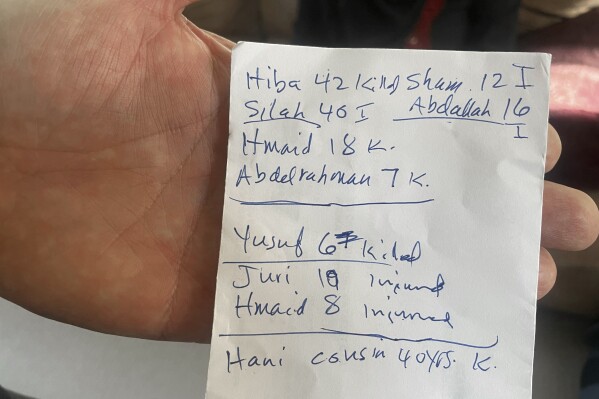 Hiba 42 killed Sham. 12 I
Silah 40 I Abdallah 16 I
Hmaid 18 K.
Abdelrahman 7 K.
Yusuf 6 killed
Juri injured
Hmaid 8 injured
Hani cousin 40yrs. K.